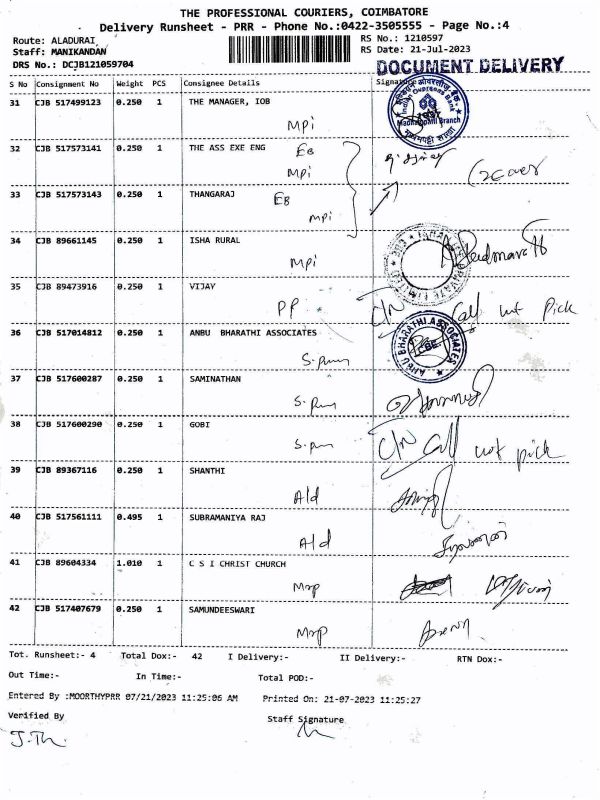 THE PROFESSIONAL COURIERS, COIMBATORE
Delivery Runsheet - PRR - Phone No.:0422-3505555 - Page No.:4
Route: ALADURAI
RS No.: 1210597
Staff: MANIKANDAN
RS Date: 21-Jul-2023
DRS No.: DCJB121059704
DOCUMENT DELIVERY
S No Consignment No Weight PCS Consignee Details Signature
31 CJB 517499123 0.250 1 THE MANAGER, IOB
Mpi
Indian Overseas Bank
32 CJB 517573141 0.250 1 THE ASS EXE ENG EB
Mpi
33 CJB 517573143 0.250 1 THANGARAJ EB
Mpi
34 CJB 89661145 0.250 1 ISHA RURAL
Mpi
35 CJB 89473916 0.250 1 VIJAY
PP C/N Call not Pick
36 CJB 517014812 0.250 1 ANBU BHARATHI ASSOCIATES
ANBU BHARATHI ASSOCIATES
CBE
37 CJB 517600287 0.250 1 SAMINATHAN
38 CJB 517600290 0.250 1 GOBI
C/N Call not pick
39 CJB 89367116 0.250 1 SHANTHI
Ald
40 CJB 517561111 0.495 1 SUBRAMANIYA RAJ
Ald
41 CJB 89604334 1.010 1 C S I CHRIST CHURCH
Mrp
42 CJB 517407679 0.250 1 SAMUNDEESWARI
Mrp
Tot. Runsheet:- 4 Total Dox:- 42 I Delivery:- II Delivery:- RTN Dox:-
Out Time:- In Time:- Total POD:-
Entered By :MOORTHYPRR 07/21/2023 11:25:06 AM Printed On: 21-07-2023 11:25:27
Verified By Staff Signature